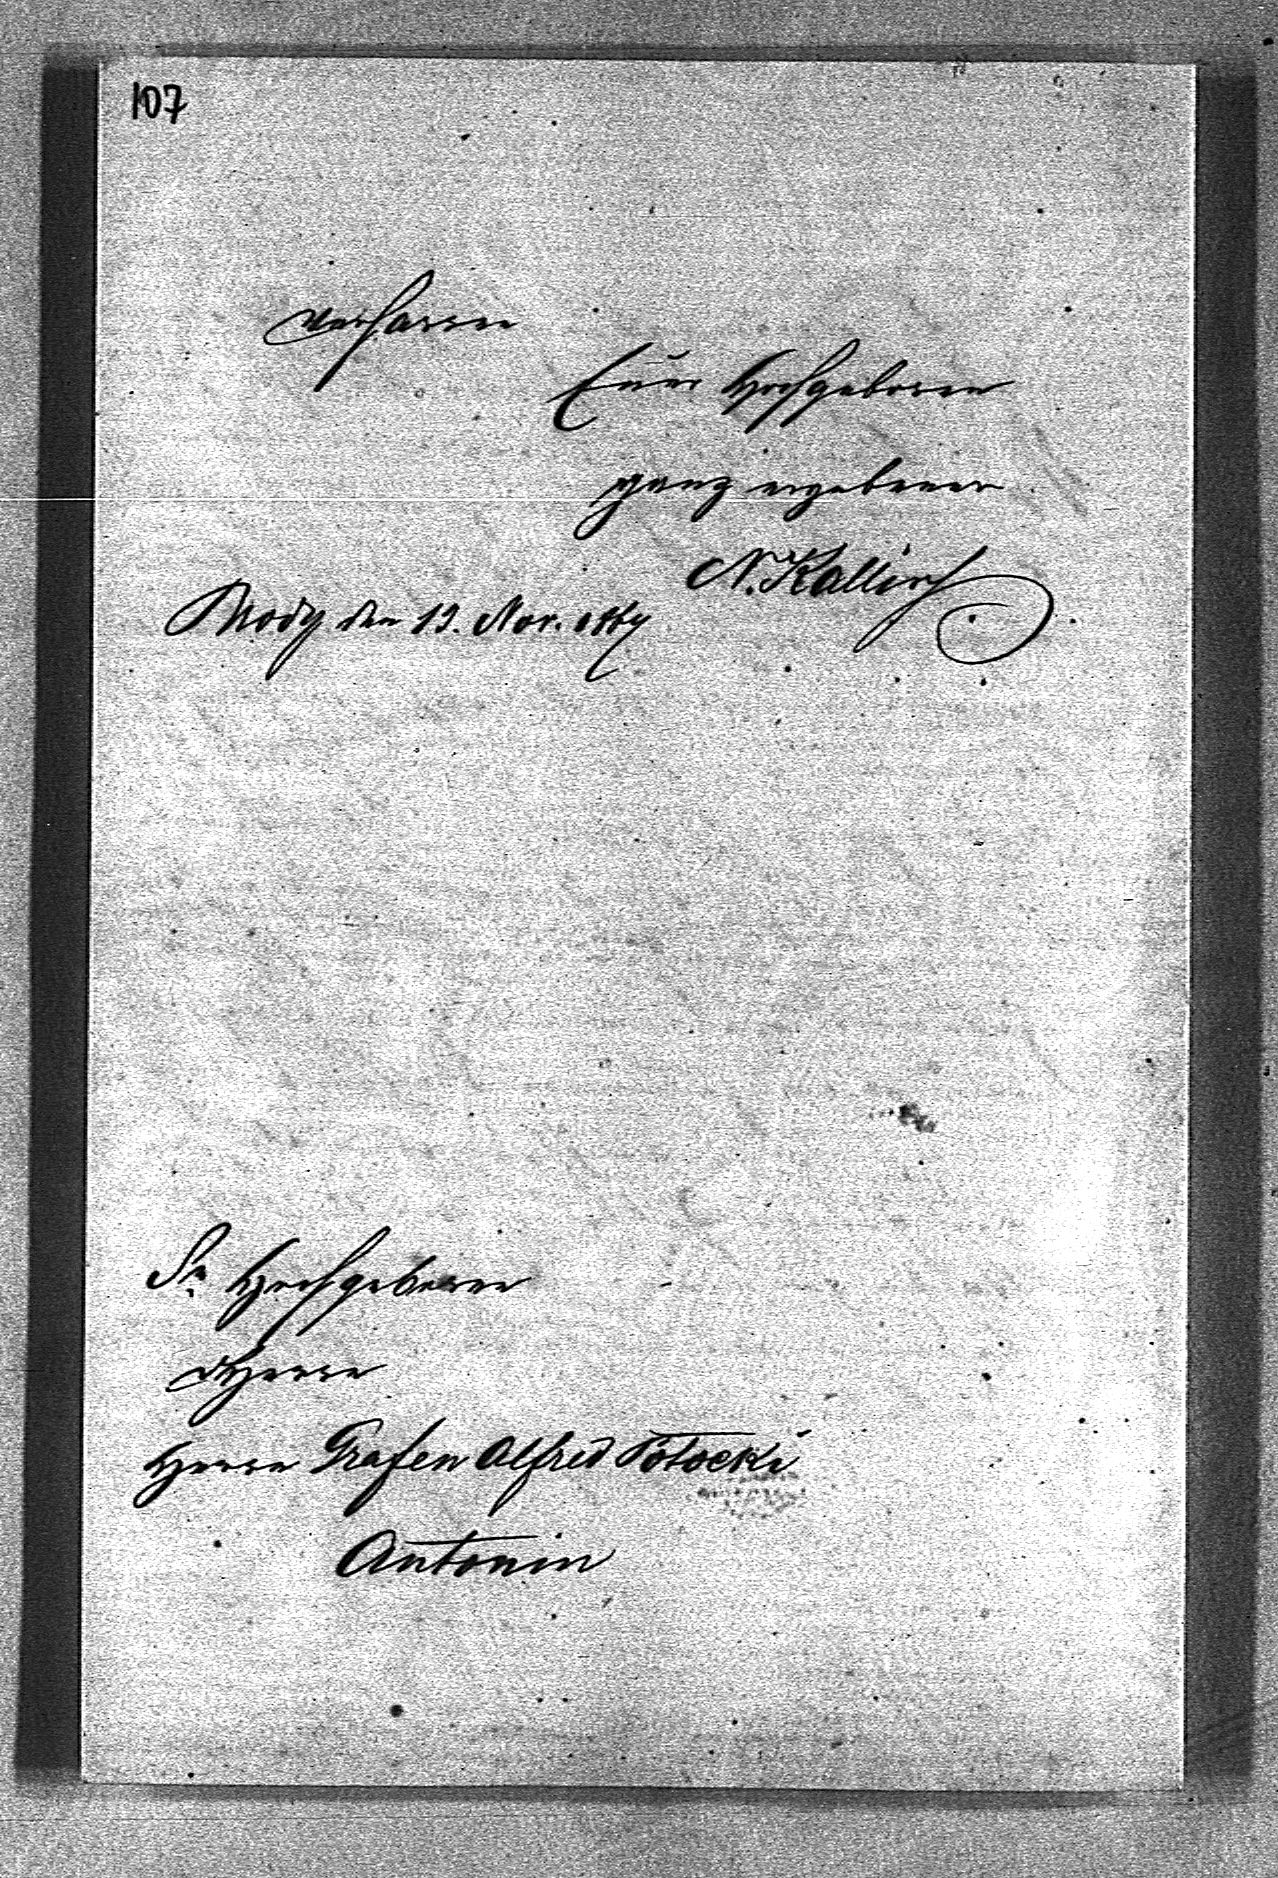 107
verharren
Euer Hochgeboren
ganz ergebener
N. Kallir
Brody den 13. Nov.
Sr. Hochgeboren
Herrn
Herrn Grafen Alfred Potocki
Antonin